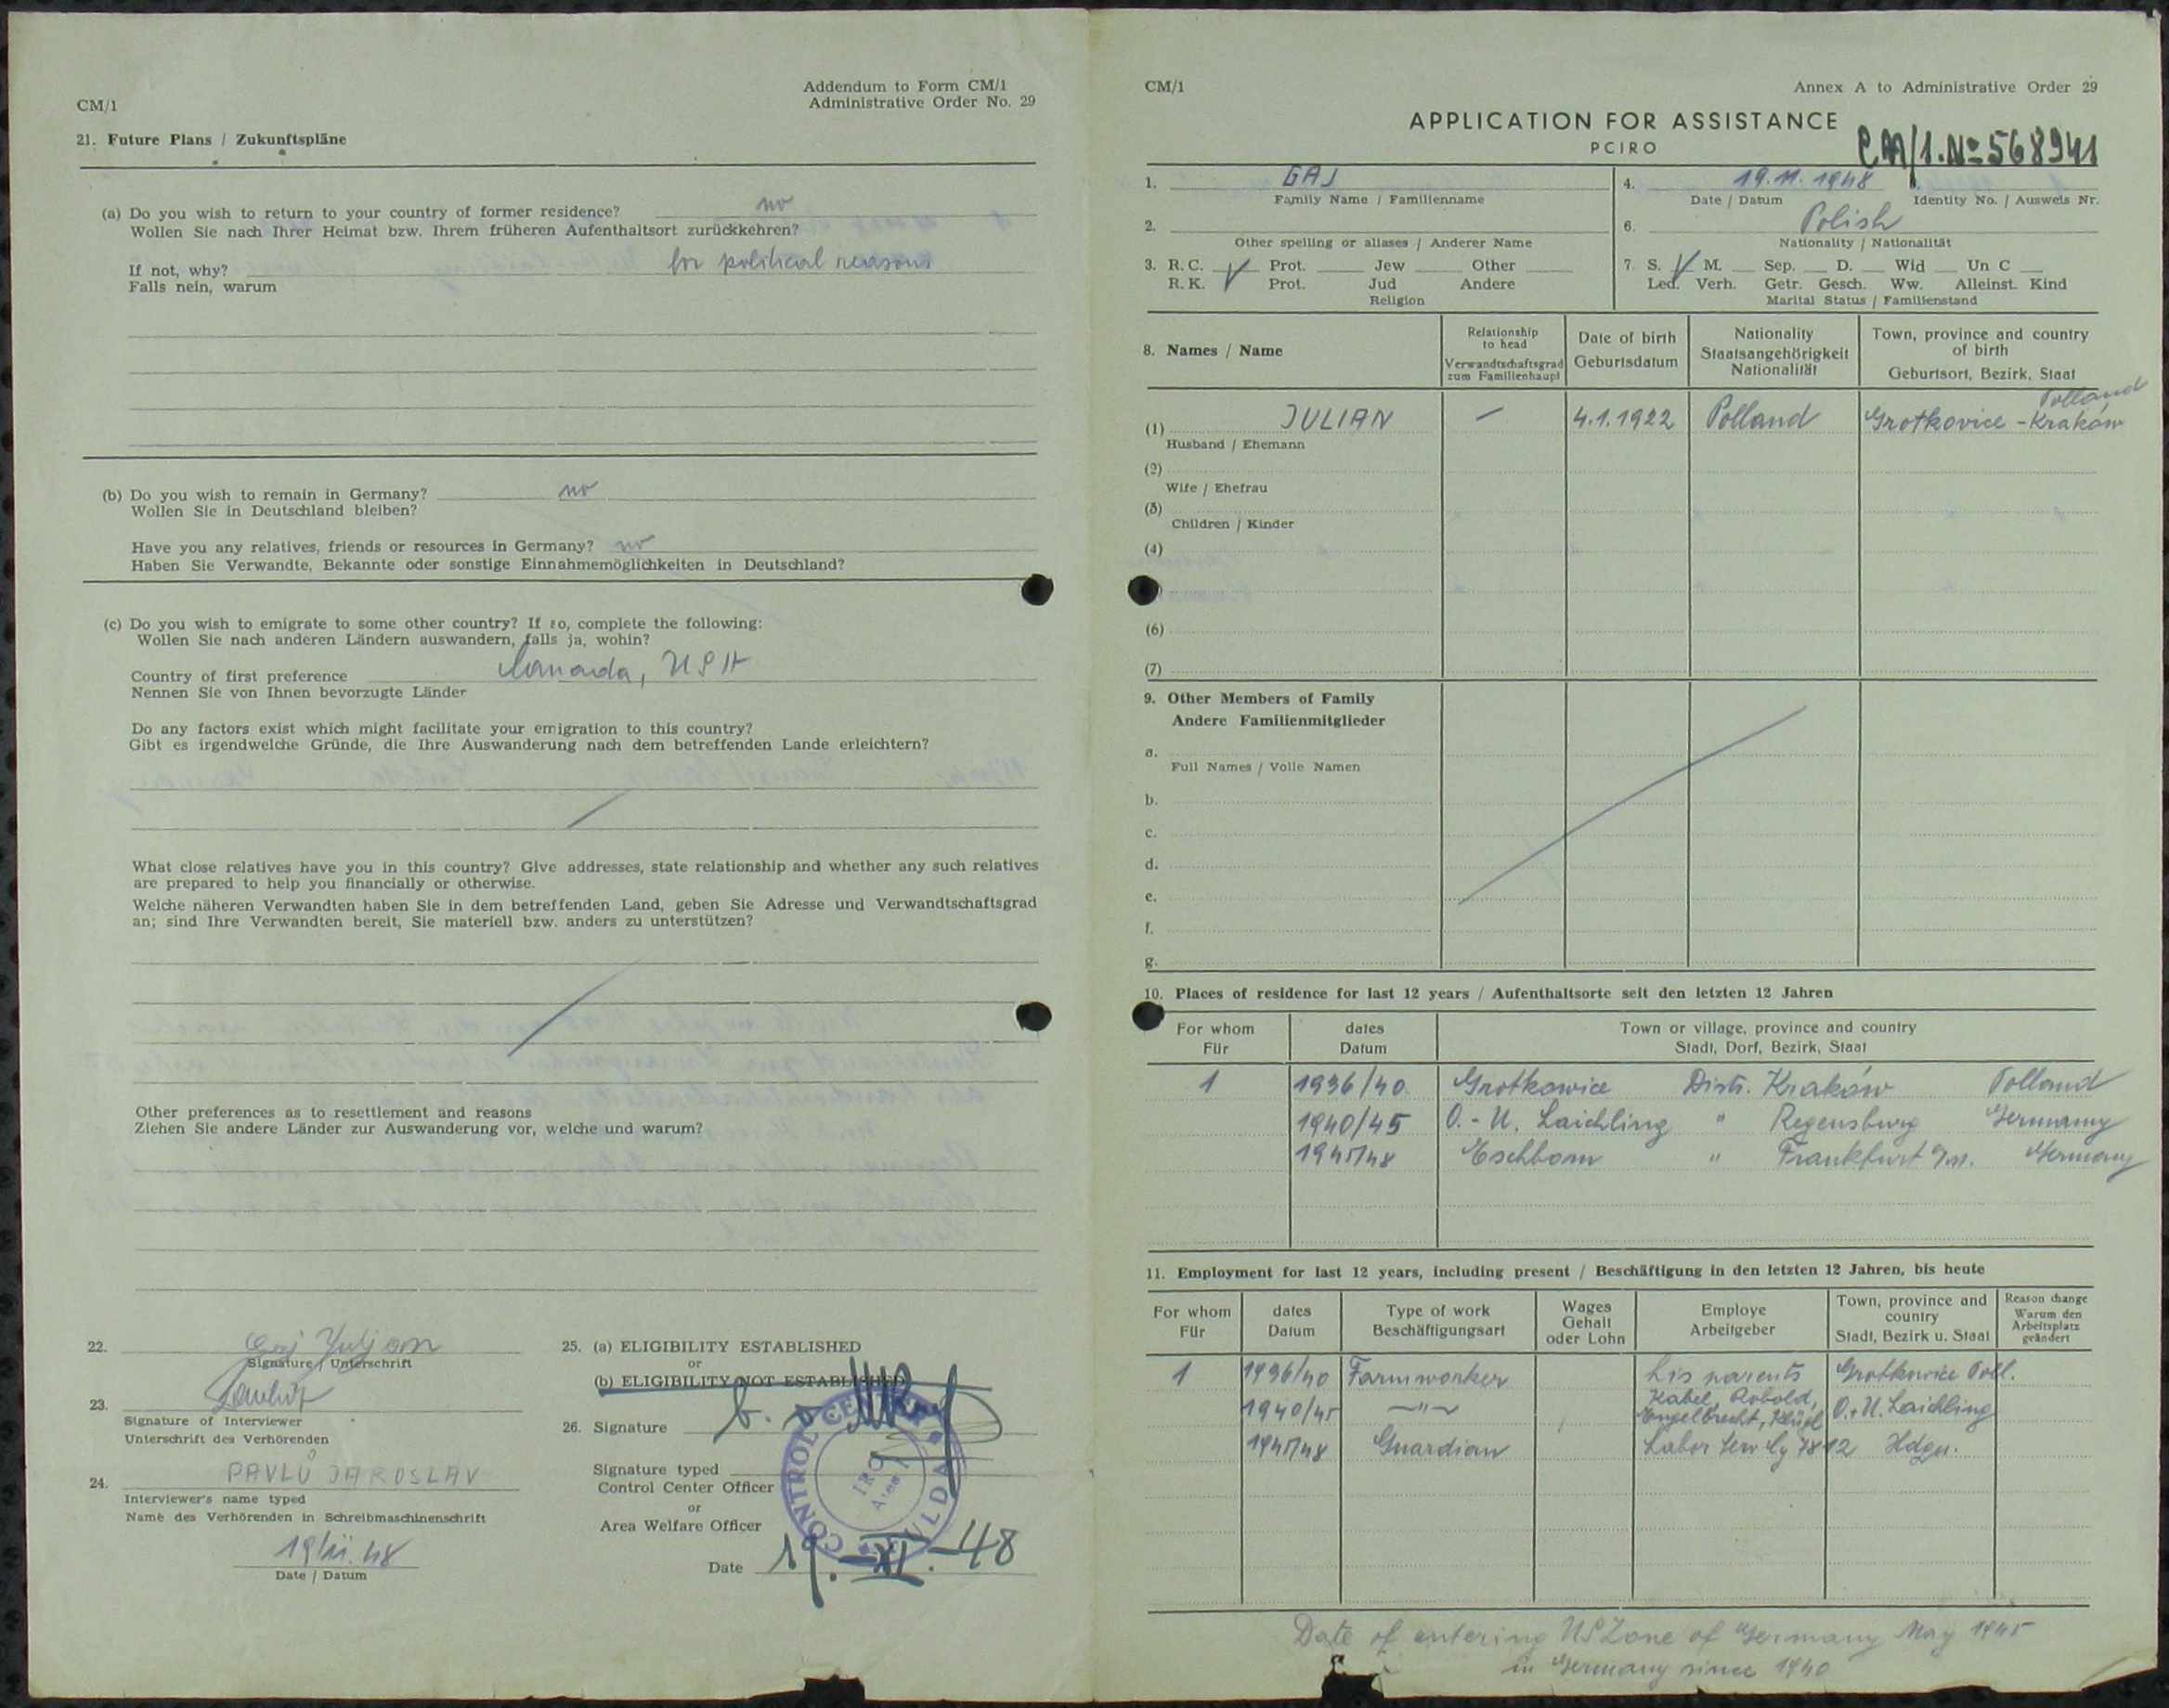 CM/1
Addendum to Form CM/1
Administrative Order No. 29
21. Future Plans / Zukunftspläne
(a) Do you wish to return to your country of former residence? no
Wollen Sie nach Ihrer Heimat bzw. Ihrem früheren Aufenthaltsort zurückkehren?
If not, why? for political reasons
Falls nein, warum
(b) Do you wish to remain in Germany? no
Wollen Sie in Deutschland bleiben?
Have you any relatives, friends or resources in Germany? no
Haben Sie Verwandte, Bekannte oder sonstige Einnahmemöglichkeiten in Deutschland?
(c) Do you wish to emigrate to some other country? If so, complete the following:
Wollen Sie nach anderen Ländern auswandern, falls ja, wohin?
Country of first preference Canada, USA
Nennen Sie von Ihnen bevorzugte Länder
Do any factors exist which might facilitate your emigration to this country?
Gibt es irgendwelche Gründe, die Ihre Auswanderung nach dem betreffenden Lande erleichtern?
What close relatives have you in this country? Give addresses, state relationship and whether any such relatives
are prepared to help you financially or otherwise.
Welche näheren Verwandten haben Sie in dem betreffenden Land, geben Sie Adresse und Verwandtschaftsgrad
an; sind Ihre Verwandten bereit, Sie materiell bzw. anders zu unterstützen?
Other preferences as to resettlement and reasons
Ziehen Sie andere Länder zur Auswanderung vor, welche und warum?
22. Gaj Yuljan
Signature / Unterschrift
23.
Signature of Interviewer
Unterschrift des Verhörenden
24. PAVLŮ JAROSLAV
Interviewer's name typed
Name des Verhörenden in Schreibmaschinenschrift
19/11.48
Date / Datum
25. (a) ELIGIBILITY ESTABLISHED
or
(b) ELIGIBILITY NOT ESTABLISHED
26. Signature
Signature typed
Control Center Officer
or
Area Welfare Officer
Date 19.-XI.-48
CONTROL CENTER FULDA
IRO
Area
CM/1
Annex A to Administrative Order 29
APPLICATION FOR ASSISTANCE
PCIRO
CM/1.No 568941
1. GAJ
Family Name / Familienname
4. 19.11.1948
Date / Datum
Identity No. / Ausweis Nr.
2.
Other spelling or aliases / Anderer Name
6. Polish
Nationality / Nationalität
3. R.C. V Prot. Jew Other
R.K. Prot. Jud Andere
Religion
7. S. V M. Sep. D. Wid Un C
Led. Verh. Getr. Gesch. Ww. Alleinst. Kind
Marital Status / Familienstand
8. Names / Name
Relationship
to head
Verwandtschaftsgrad
zum Familienhaupt
Date of birth
Geburtsdatum
Nationality
Staatsangehörigkeit
Nationalität
Town, province and country
of birth
Geburtsort, Bezirk, Staat
(1) JULIAN — 4.1.1922 Polland Grotkovice - Kraków Polland
Husband / Ehemann
(2)
Wife / Ehefrau
(3)
Children / Kinder
(4)
(6)
(7)
9. Other Members of Family
Andere Familienmitglieder
a.
Full Names / Volle Namen
b.
c.
d.
e.
f.
g.
10. Places of residence for last 12 years / Aufenthaltsorte seit den letzten 12 Jahren
For whom
Für
dates
Datum
Town or village, province and country
Stadt, Dorf, Bezirk, Staat
1 1936/40. Grotkowice Distr. Kraków Polland
1940/45 O.-U. Laichling " Regensburg Germany
1945/48 Eschborn " Frankfurt a/M. Germany
11. Employment for last 12 years, including present / Beschäftigung in den letzten 12 Jahren, bis heute
For whom
Für
dates
Datum
Type of work
Beschäftigungsart
Wages
Gehalt
oder Lohn
Employe
Arbeitgeber
Town, province and
country
Stadt, Bezirk u. Staat
Reason change
Warum den
Arbeitsplatz
geändert
1 1936/40 Farmworker his parents Grotkowice Poll.
1940/45 —"— Kabel, Robold, Engelbrecht, Klügl O.+U. Laichling
1945/48 Guardian Labor Serv. Cy 7812 Hdqu.
Date of entering US Zone of Germany May 1945
in Germany since 1940